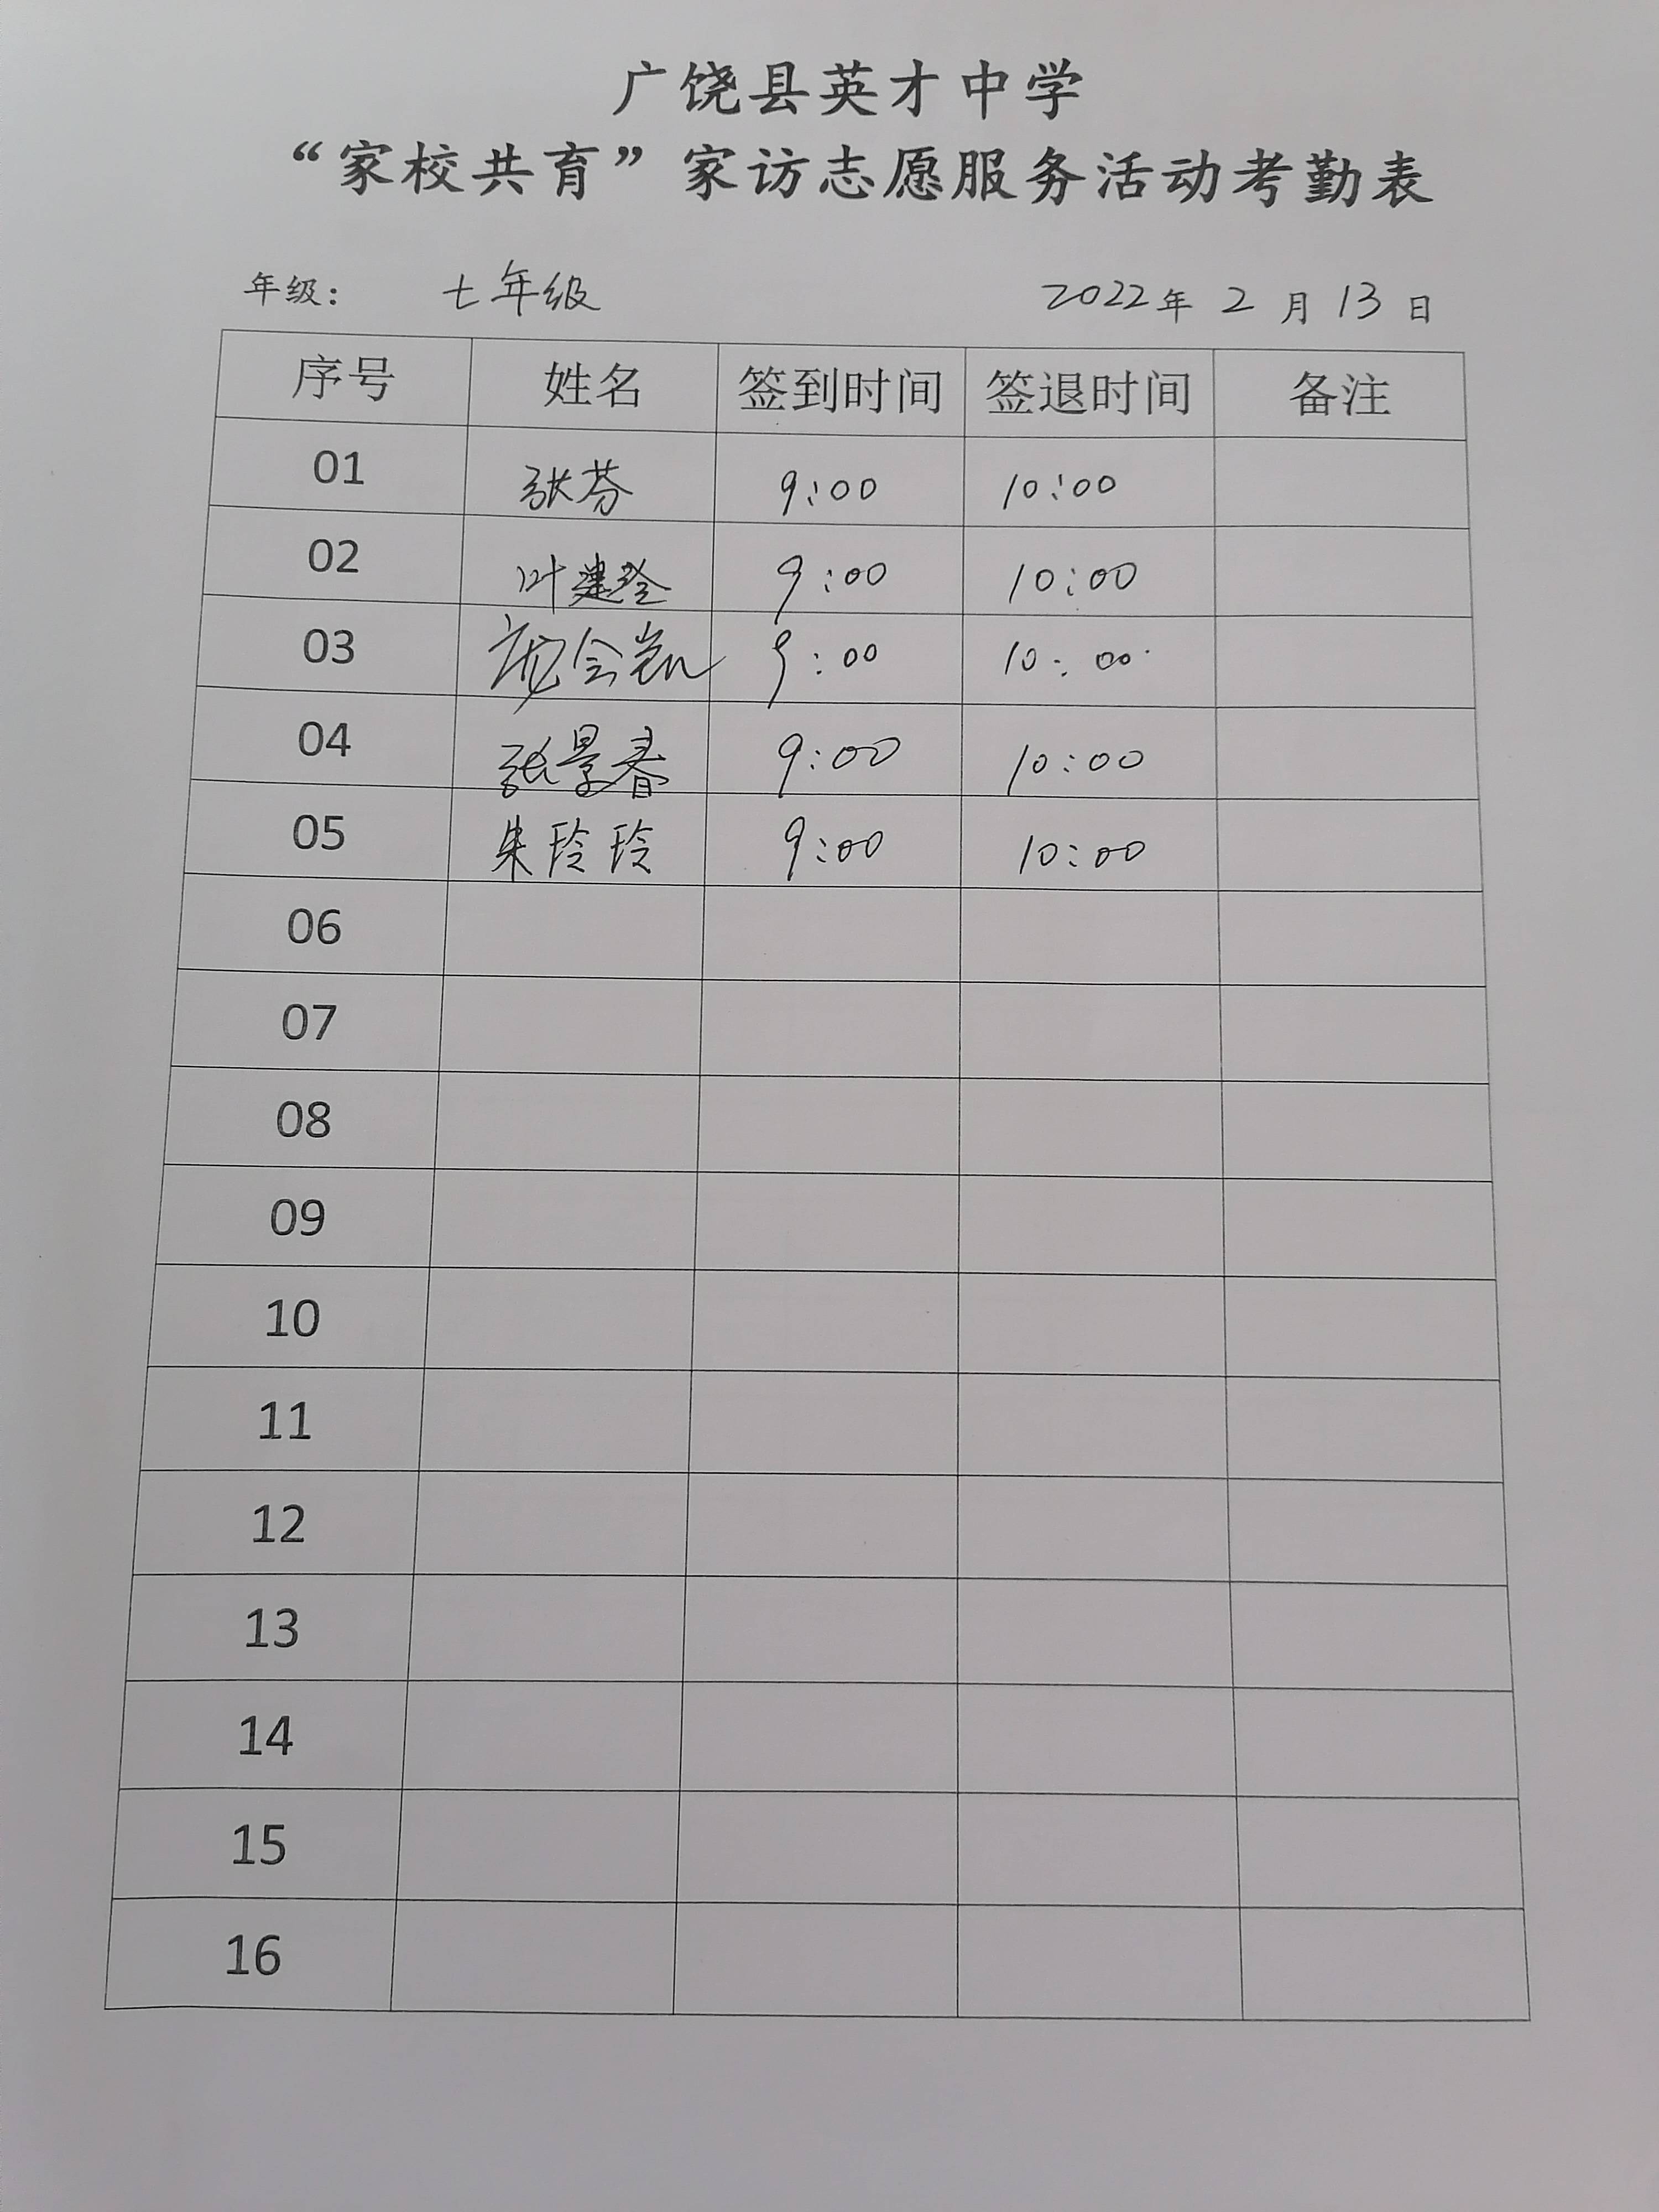 广饶县英才中学
“家校共育”家访志愿服务活动考勤表
年级： 七年级 2022年 2 月 13 日
序号 姓名 签到时间 签退时间 备注
01 张芬 9:00 10:00
02 叶建 9:00 10:00
03 庞会凯 9:00 10:00
04 张景春 9:00 10:00
05 朱玲玲 9:00 10:00
06
07
08
09
10
11
12
13
14
15
16